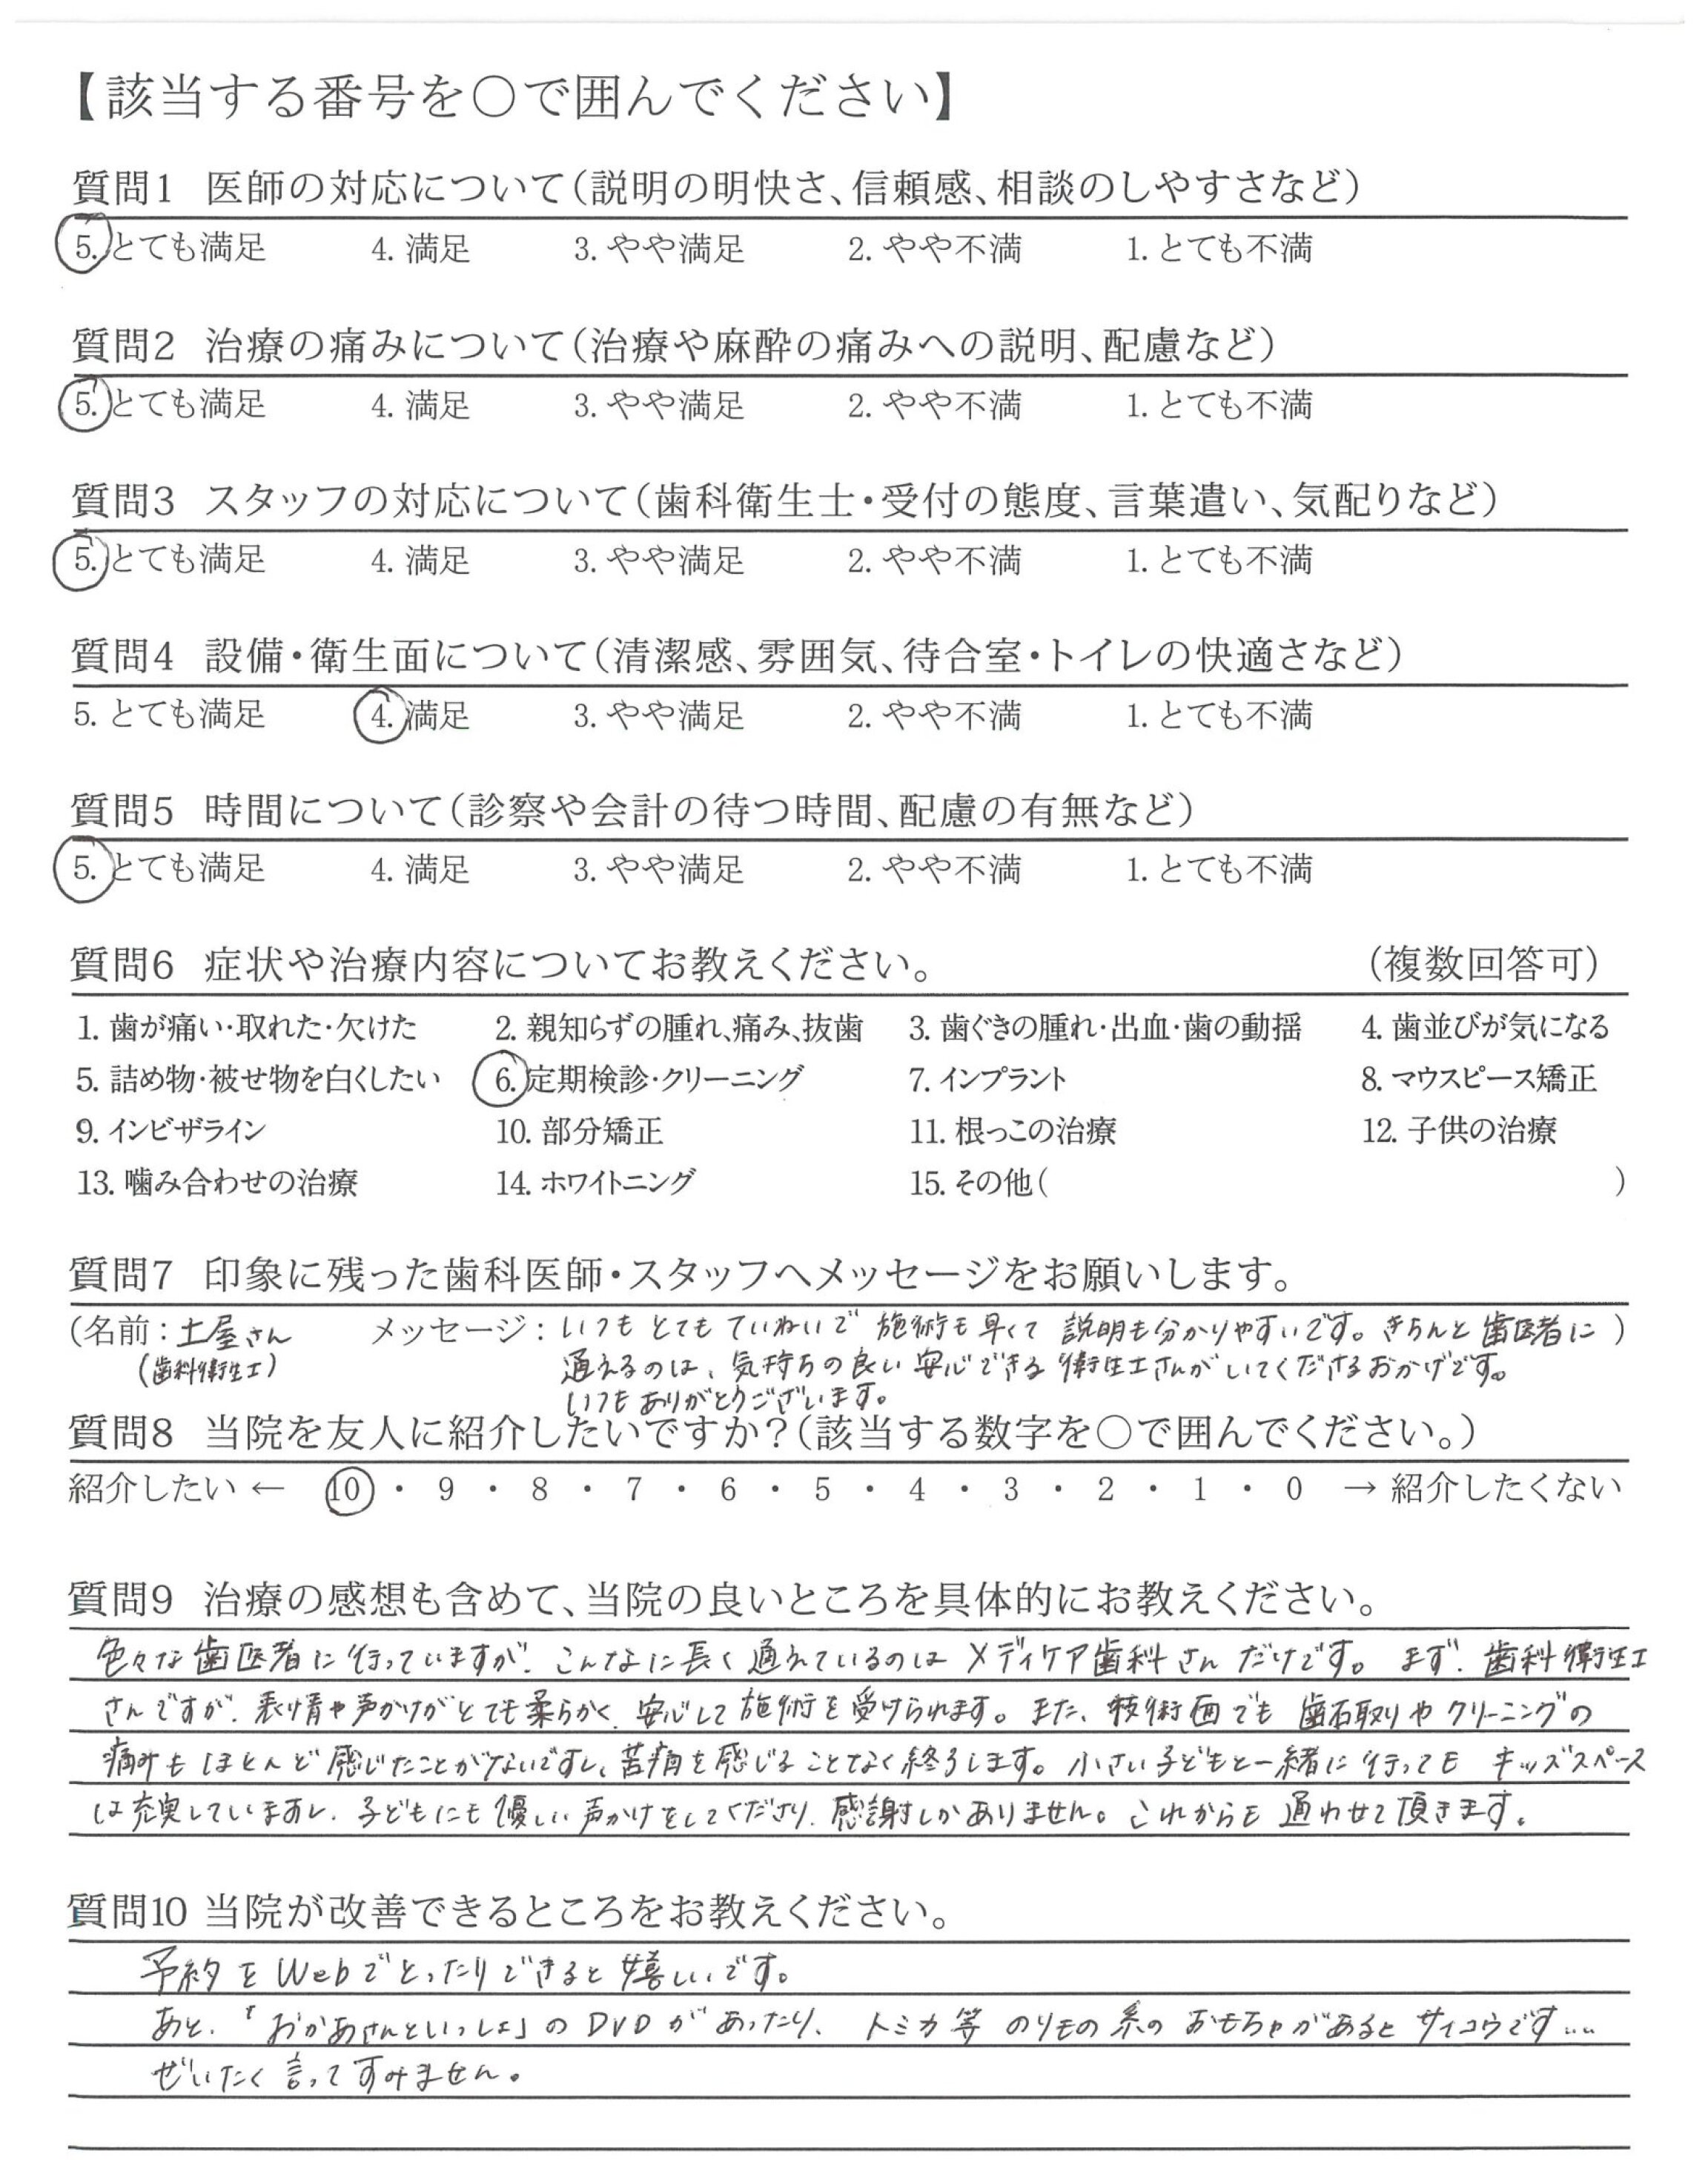 【該当する番号を○で囲んでください】
質問1 医師の対応について(説明の明快さ、信頼感、相談のしやすさなど)
5. とても満足 4. 満足 3. やや満足 2. やや不満 1. とても不満
質問2 治療の痛みについて(治療や麻酔の痛みへの説明、配慮など)
5. とても満足 4. 満足 3. やや満足 2. やや不満 1. とても不満
質問3 スタッフの対応について(歯科衛生士・受付の態度、言葉遣い、気配りなど)
5. とても満足 4. 満足 3. やや満足 2. やや不満 1. とても不満
質問4 設備・衛生面について(清潔感、雰囲気、待合室・トイレの快適さなど)
5. とても満足 4. 満足 3. やや満足 2. やや不満 1. とても不満
質問5 時間について(診察や会計の待つ時間、配慮の有無など)
5. とても満足 4. 満足 3. やや満足 2. やや不満 1. とても不満
質問6 症状や治療内容についてお教えください。 (複数回答可)
1. 歯が痛い・取れた・欠けた 2. 親知らずの腫れ、痛み、抜歯 3. 歯ぐきの腫れ・出血・歯の動揺 4. 歯並びが気になる
5. 詰め物・被せ物を白くしたい 6. 定期検診・クリーニング 7. インプラント 8. マウスピース矯正
9. インビザライン 10. 部分矯正 11. 根っこの治療 12. 子供の治療
13. 噛み合わせの治療 14. ホワイトニング 15. その他( )
質問7 印象に残った歯科医師・スタッフへメッセージをお願いします。
(名前:土屋さん メッセージ:いつもとてもていねいで 施術も早くて 説明も分かりやすいです。きちんと歯医者に )
(歯科衛生士) 通えるのは、気持ちの良い 安心できる 衛生士さんがしてくださるおかげです。
いつもありがとうございます。
質問8 当院を友人に紹介したいですか?(該当する数字を○で囲んでください。)
紹介したい ← 10 ・ 9 ・ 8 ・ 7 ・ 6 ・ 5 ・ 4 ・ 3 ・ 2 ・ 1 ・ 0 → 紹介したくない
質問9 治療の感想も含めて、当院の良いところを具体的にお教えください。
色々な歯医者に行っていますが、こんなに長く通えているのはメディケア歯科さんだけです。まず、歯科衛生士
さんですが、表情や声かけがとても柔らかく、安心して施術を受けられます。また、技術面でも 歯石取りやクリーニングの
痛みもほとんど感じたことがないですし、苦痛を感じることなく終了します。小さい子どもと一緒に行っても キッズスペース
は充実していますし、子どもにも優しい声かけをしてくださり、感謝しかありません。これからも通わせて頂きます。
質問10 当院が改善できるところをお教えください。
予約をWebでとったりできると嬉しいです。
あと、「おかあさんといっしょ」のDVDがあったり、トミカ等 のりもの系の おもちゃがあると サイコウです…
ぜいたく言ってすみません。